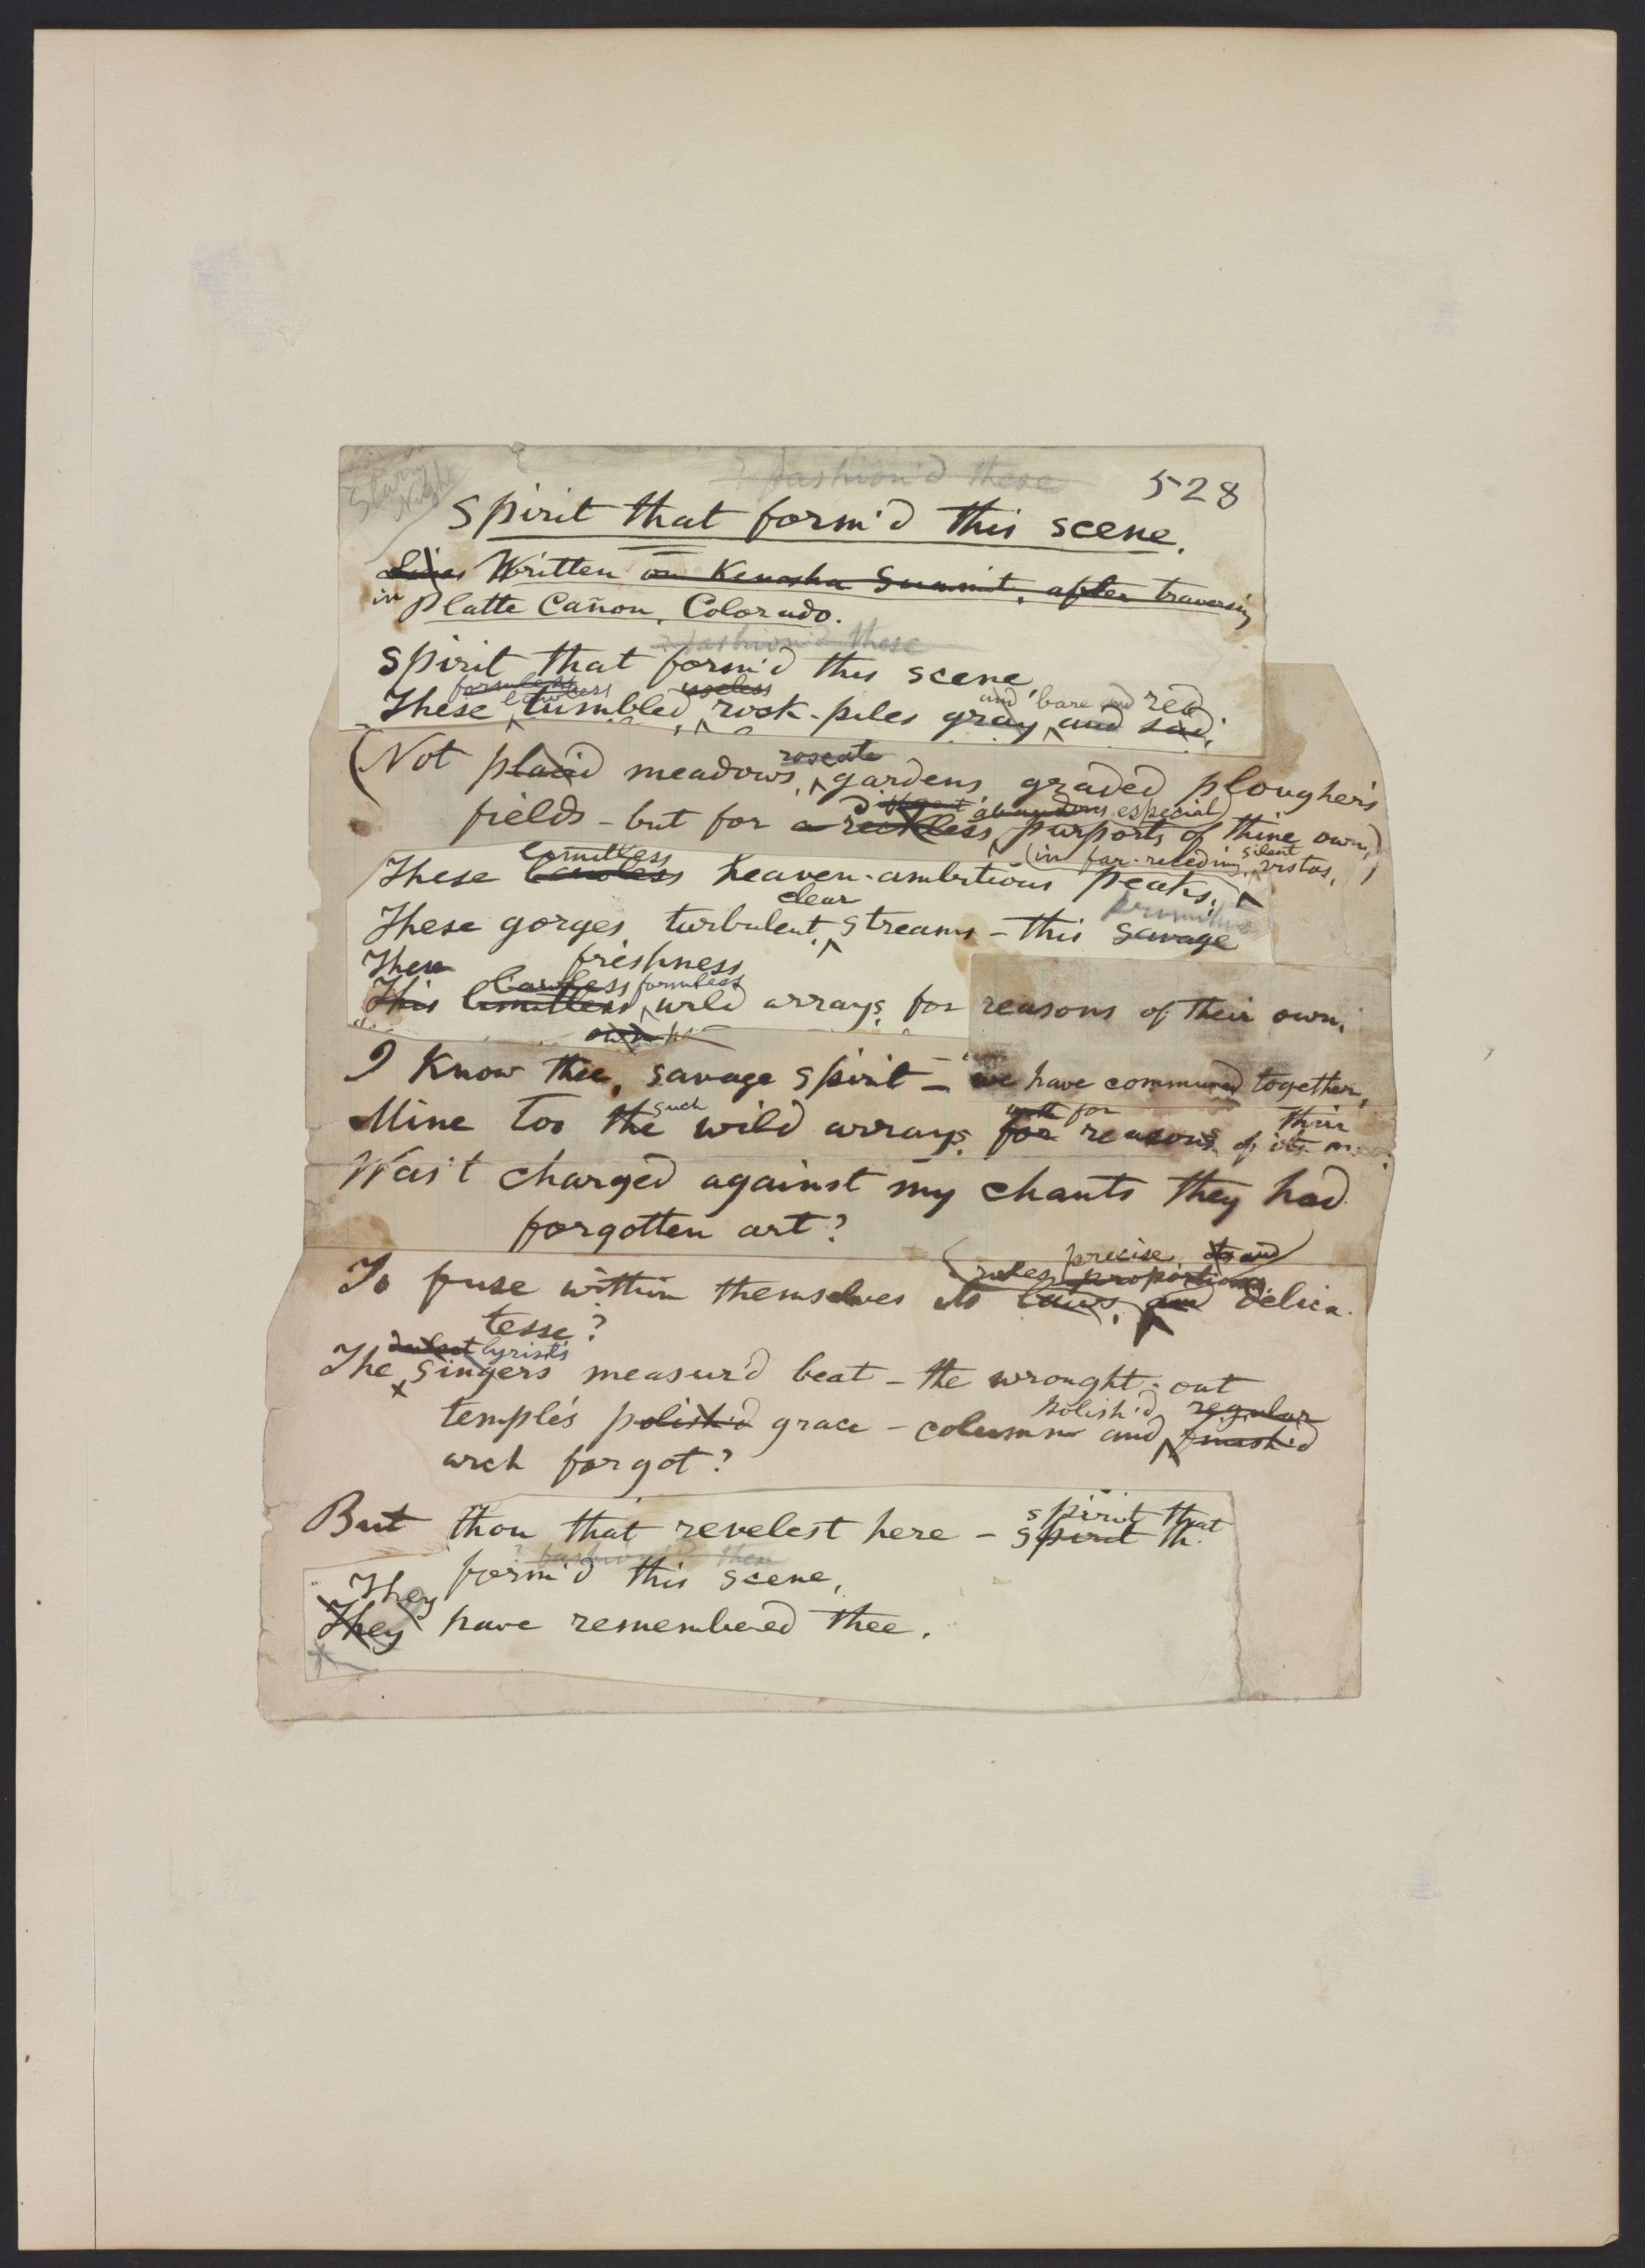 Starry
Night
? fashion'd these
528
Spirit that form'd this scene.
Lines Written on Kenosha Summit, after traversing
in Platte Cañon, Colorado.
? fashion'd these
Spirit that form'd this scene,
formless lawless useless and bare and red
These tumbled rock-piles gray and sad,
roseate
(Not placid meadows, gardens, graded plougher's
abandons especial
fields – but for a reckless purports of thine own,)
limitless (in far-receding silent vistas,)
These lawless heaven-ambitious peaks,
clear primitive
These gorges, turbulent streams – this savage
These freshness
lawless formless
This limitless wild arrays, for reasons of their own,
own
I know thee, savage spirit – we have communed together,
such for their
Mine too the wild arrays, for reasons of its
Was't charged against my chants they had
forgotten art?
precise and
rules proportions
To fuse within themselves its laws, and delica-
tesse?
lyrist's
The singers measur'd beat – the wrought-out
polish'd regular
temple's polish'd grace – column and finish'd
arch forgot?
spirit that
But thou that revelest here – spirit th
? fashion'd these
form'd this scene,
They
They have remembered thee.